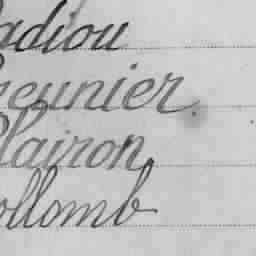 adiou
eunier.
lairon,
ollomb